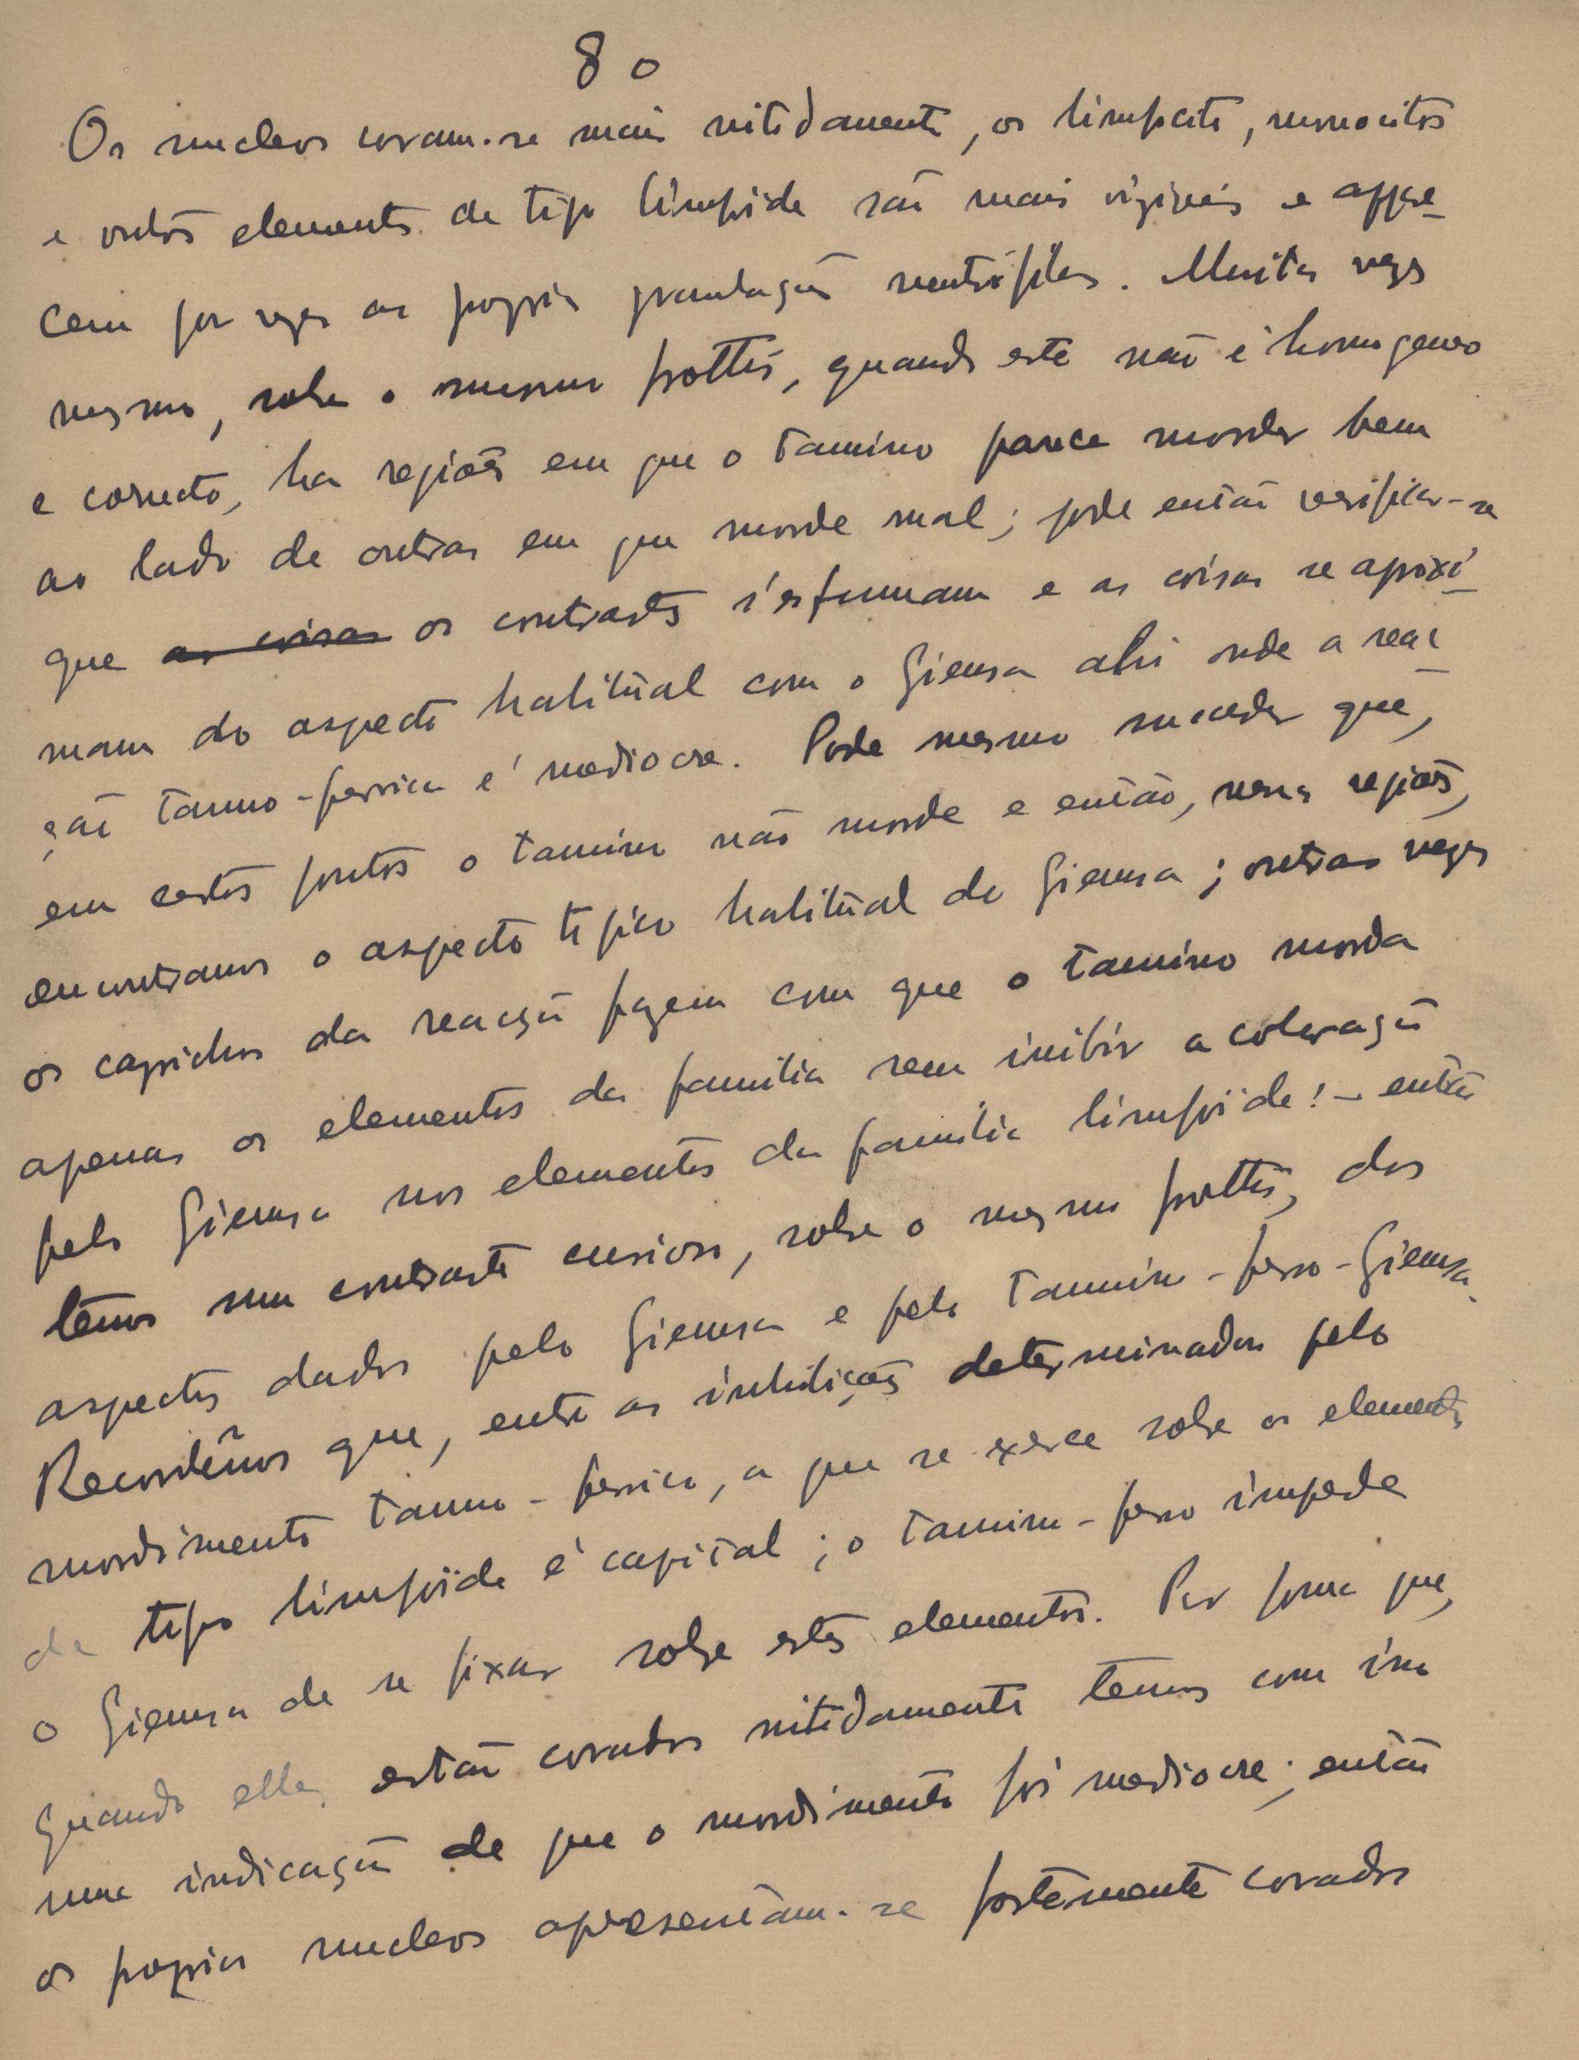 80
Os nucleos coram-se mais nitidamente, os limfocitos, monocitos
e outros elementos de tipo limfoide são mais vizives e appare-
cem por vezes as proprias granulações neutrófilas. Muitas vezes
mesmo, sobre o mesmo frottis, quando este não é homogeneo
e correcto, ha regiões em que o tanino parece morder bem
ao lado de outras em que morde mal; pode então verificar-se
que as coisas os contrastes s'esfumam e as coisas se aproxi-
mam do aspecto habitual com o Giemsa ahi onde a reac-
ção tanno-ferrica é mediocre. Pode mesmo suceder que,
em certos pontos o tanino não morde e então, nessas regiões,
encontramos o aspecto tipico habitual do Giemsa; outras vezes
os caprichos da reacção fazem com que o tanino morda
apenas os elementos da familia sem inibir a coloração
pelo Giemsa nos elementos da familia limfoide! - então
temos um contraste curioso, sobre o mesmo frottis, dos
aspectos dados pelo Giemsa e pelo tannino-ferro-Giemsa.
Recordêmos que, entre as inhibições determinadas pelo
mordimento tanno-ferrico, a que se exerce sobre os elementos
de tipo limfoide é capital; o tanino-ferro impede
o Giemsa de se fixar sobre estes elementos. Por forma que,
quando elles estão corados nitidamente temos com isso
uma indicação de que o mordimento foi mediocre; então
os proprios nucleos apresentam-se fortemente corados